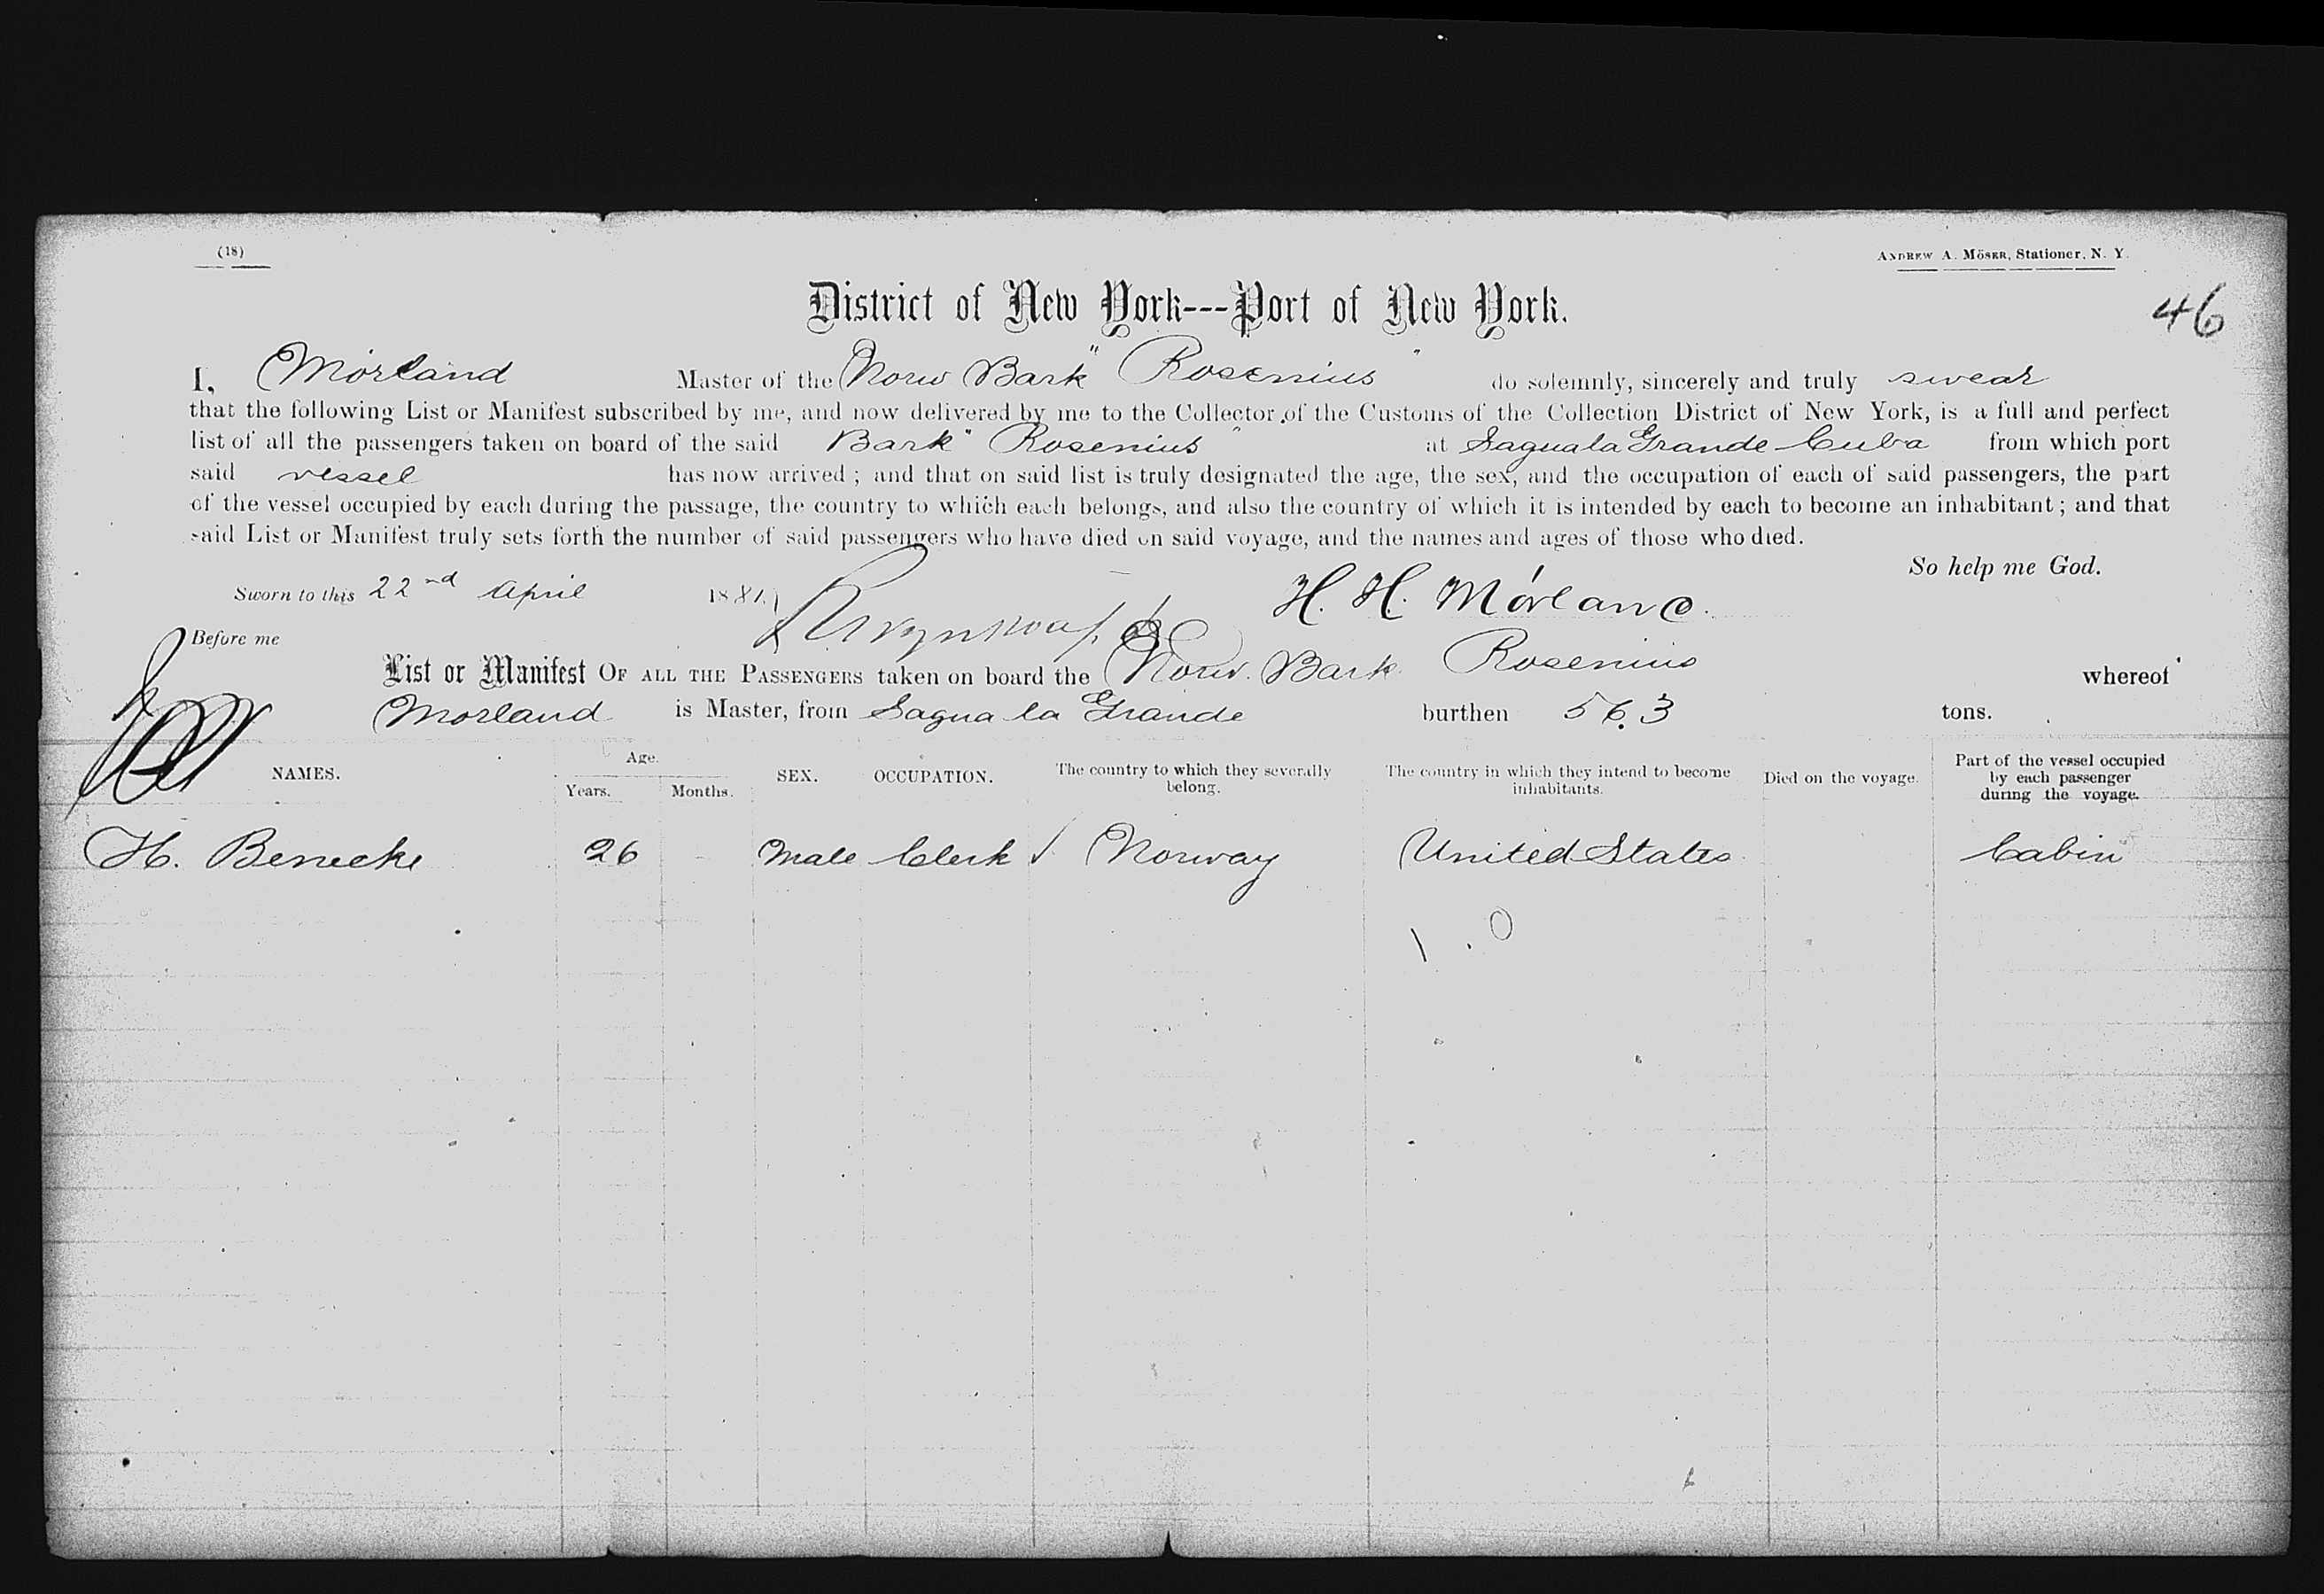 (18)
ANDREW A. MÖSER, Stationer, N. Y.
District of New York---Port of New York.
46
I, Mórland Master of the Norw Bark "Rosenius" do solemnly, sincerely and truly swear
that the following List or Manifest subscribed by me, and now delivered by me to the Collector of the Customs of the Collection District of New York, is a full and perfect
list of all the passengers taken on board of the said Bark "Rosenius" at Sagua la Grande Cuba from which port
said vessel has now arrived; and that on said list is truly designated the age, the sex, and the occupation of each of said passengers, the part
of the vessel occupied by each during the passage, the country to which each belongs, and also the country of which it is intended by each to become an inhabitant; and that
said List or Manifest truly sets forth the number of said passengers who have died on said voyage, and the names and ages of those who died.
So help me God.
Sworn to this 22nd April 1881 H. H. Mórland.
Before me
List or Manifest OF ALL THE PASSENGERS taken on board the Norw. Bark Rosenius whereof
Morland is Master, from Sagua la Grande burthen 563 tons.
NAMES. Age. Years. Months. SEX. OCCUPATION. The country to which they severally belong. The country in which they intend to become inhabitants. Died on the voyage. Part of the vessel occupied by each passenger during the voyage.
H. Benecke 26 - Male Clerk ✓ Norway United States Cabin
1 . 0